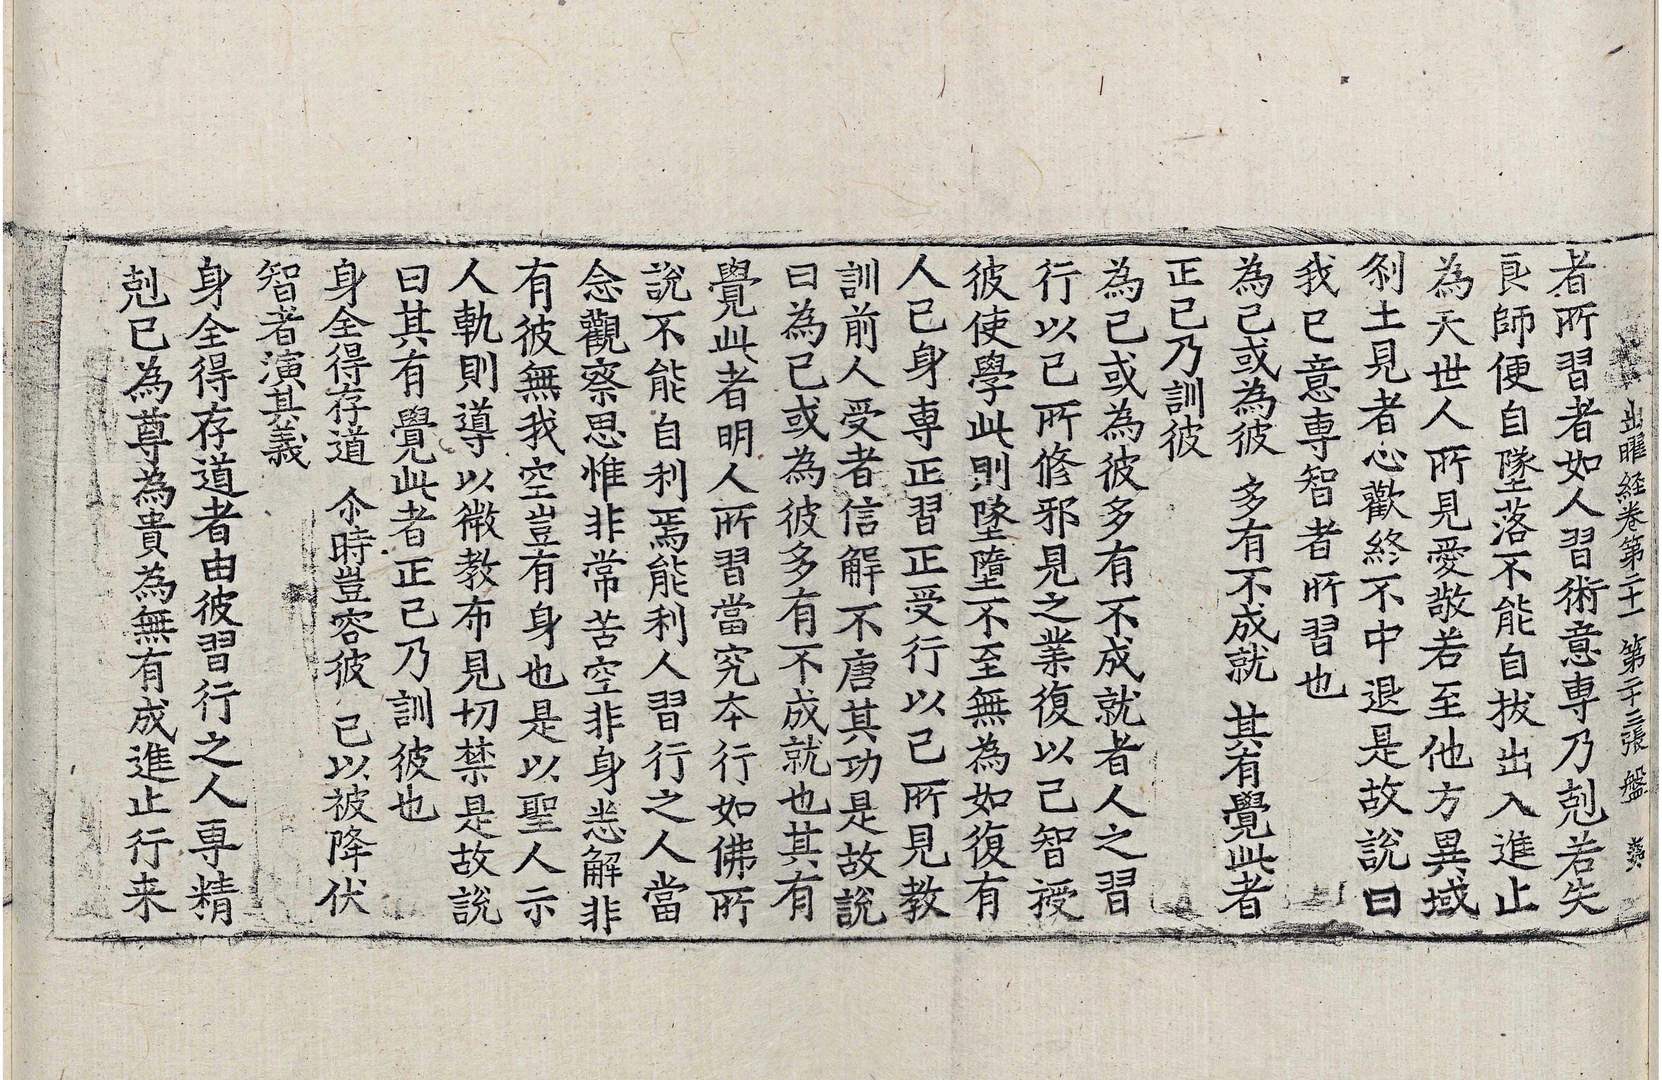 出曜経卷第二十一 第二十三張 盤
者所習者如人習術意專乃剋若失
良師便自墜落不能自拔出入進止
為天世人所見愛敬若至他方異域
刹土見者心歡終不中退是故說曰
我已意專智者所習也
為己或為彼 多有不成就 其有覺此者
正己乃訓彼
為己或為彼多有不成就者人之習
行以己所修邪見之業復以己智授
彼使學此則墜墮不至無為如復有
人己身專正習正受行以己所見教
訓前人受者信解不唐其功是故說
曰為己或為彼多有不成就也其有
覺此者明人所習當究本行如佛所
說不能自利焉能利人習行之人當
念觀察思惟非常苦空非身悉解非
有彼無我空豈有身也是以聖人示
人軌則導以微教布見切禁是故說
曰其有覺此者正己乃訓彼也
身全得存道 尒時豈容彼 已以被降伏
智者演其義
身全得存道者由彼習行之人專精
剋己為尊為貴為無有成進止行来